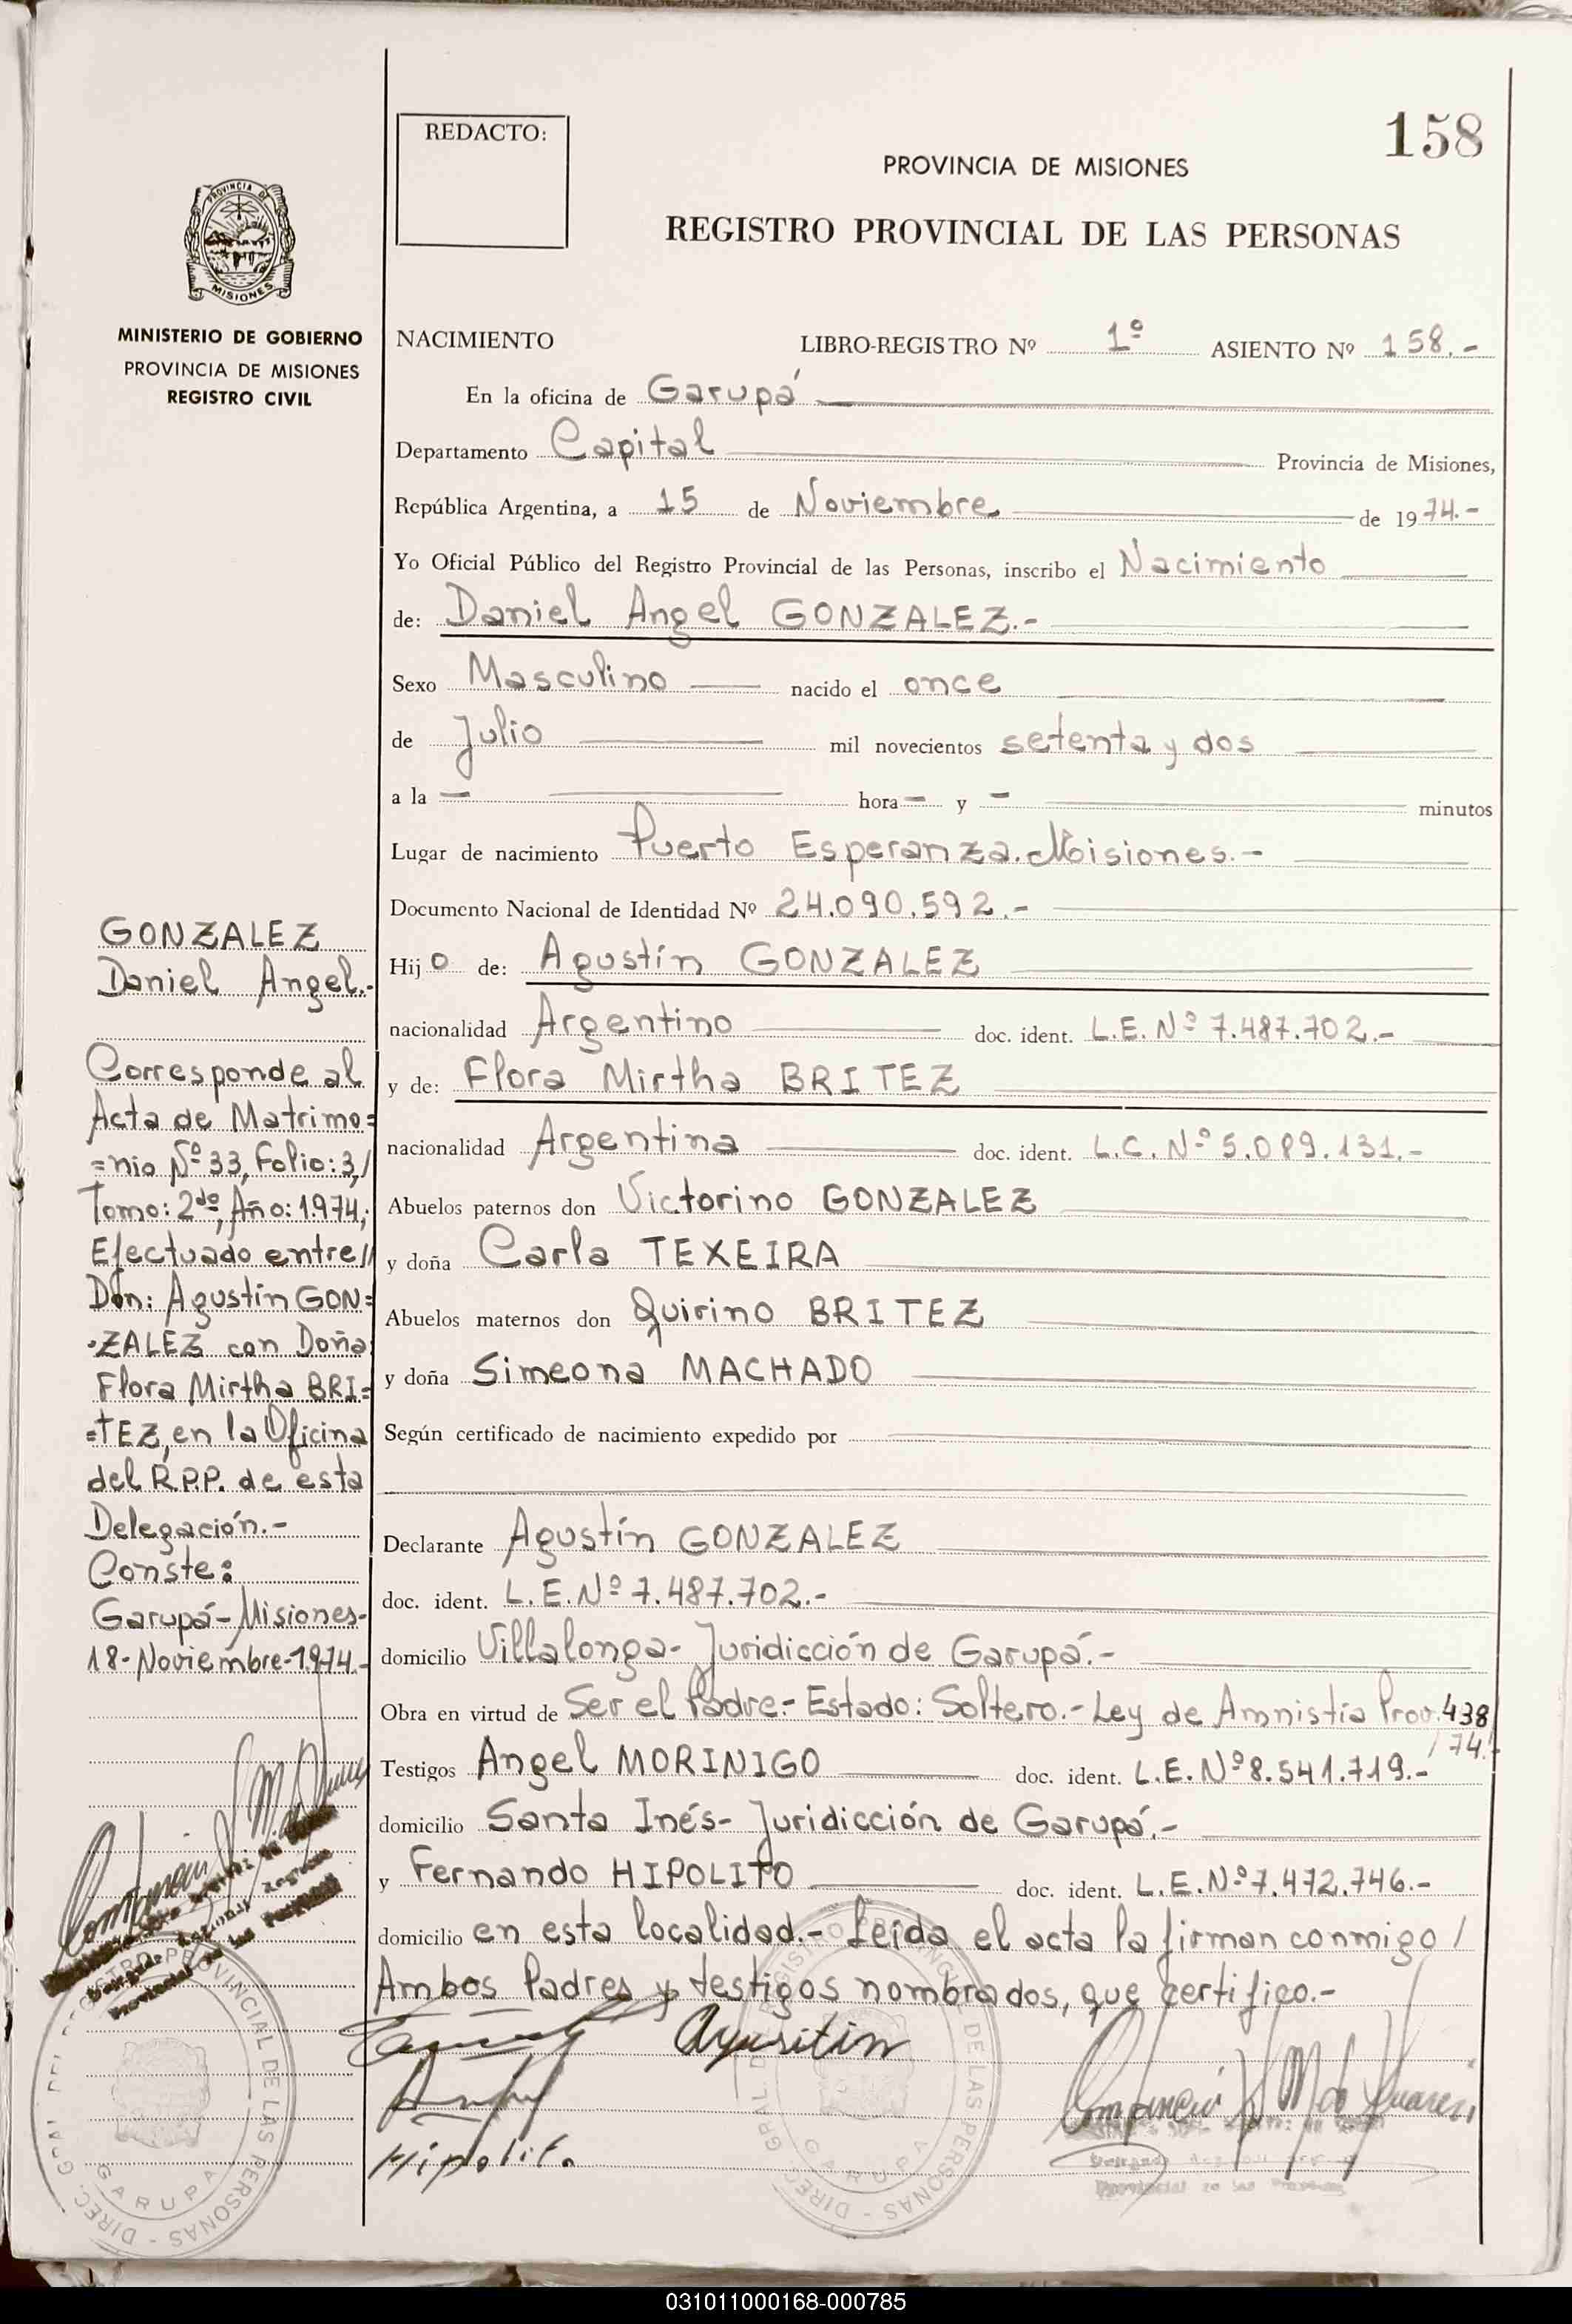 REDACTO:
158
PROVINCIA DE MISIONES
REGISTRO PROVINCIAL DE LAS PERSONAS
PROVINCIA DE
MISIONES
MINISTERIO DE GOBIERNO
PROVINCIA DE MISIONES
REGISTRO CIVIL
NACIMIENTO LIBRO-REGISTRO Nº 1º ASIENTO Nº 158.-
En la oficina de Garupá
Departamento Capital Provincia de Misiones,
República Argentina, a 15 de Noviembre de 1974.-
Yo Oficial Público del Registro Provincial de las Personas, inscribo el Nacimiento
de: Daniel Angel GONZALEZ.-
Sexo Masculino nacido el once
de Julio mil novecientos setenta y dos
a la — hora — y — minutos
Lugar de nacimiento Puerto Esperanza. Misiones.-
Documento Nacional de Identidad Nº 24.090.592.-
Hijo de: Agustín GONZALEZ
nacionalidad Argentino doc. ident. L.E. Nº 7.487.702.-
y de: Flora Mirtha BRITEZ
nacionalidad Argentina doc. ident. L.C. Nº 5.089.131.-
Abuelos paternos don Victorino GONZALEZ
y doña Carla TEXEIRA
Abuelos maternos don Quirino BRITEZ
y doña Simeona MACHADO
Según certificado de nacimiento expedido por
Declarante Agustín GONZALEZ
doc. ident. L.E. Nº 7.487.702.-
domicilio Villalonga- Juridicción de Garupá.-
Obra en virtud de Ser el Padre.- Estado: Soltero.- Ley de Amnistía Prov. 438
/74.-
Testigos Angel MORINIGO doc. ident. L.E. Nº 8.541.719.-
domicilio Santa Inés- Juridicción de Garupá.-
y Fernando HIPOLITO doc. ident. L.E. Nº 7.472.746.-
domicilio en esta localidad.- Leída el acta la firman conmigo /
Ambos Padres y testigos nombrados, que certifico.-
Agusitin
Hipolito
GONZALEZ
Daniel Angel.-
Corresponde al
Acta de Matrimo=
=nio Nº 33, Folio: 3,/
Tomo: 2do, Año: 1974,
Efectuado entre //
Don: Agustín GON=
=ZALEZ con Doña
Flora Mirtha BRI=
=TEZ, en la Oficina
del R.P.P. de esta
Delegación.-
Conste:
Garupá-Misiones-
18-Noviembre-1974.-
PROVINCIAL DE LAS PERSONAS - DIREC. GRAL
GARUPA
DE LAS PERSONAS - DIREC. GRAL
GARUPA
031011000168-000785